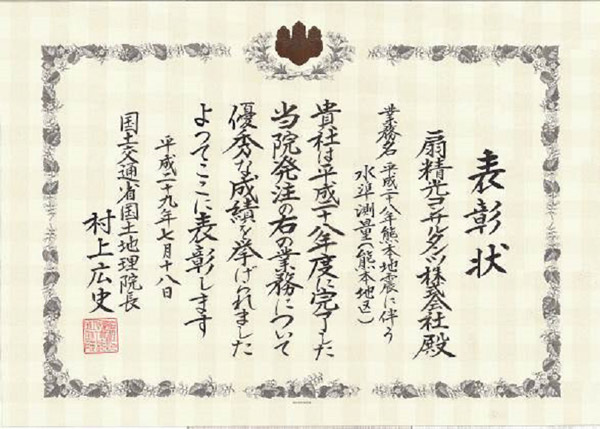 表彰状
扇精光コンサルタンツ株式会社殿
業務名 平成二八年熊本地震に伴う
水準測量(熊本地区)
貴社は平成二十八年度に完了した
当院発注の右の業務について
優秀な成績を挙げられました
よってここに表彰します
平成二十九年七月十八日
国土交通省国土地理院長
村上広史